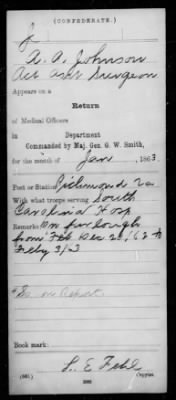 (CONFEDERATE.)
J
A. A. Johnson
Act Asst Surgeon
Appears on a
Return
of Medical Officers
in Department
Commanded by Maj. Gen. G. W. Smith,
for the month of Jan, 1863
Post or Station Richmond Va
With what troops serving South
Carolina Hosp
Remarks: On furlough
from Dec 2
Feby 3/63
Report
Book mark:
L. E. Fehl
Copyist.